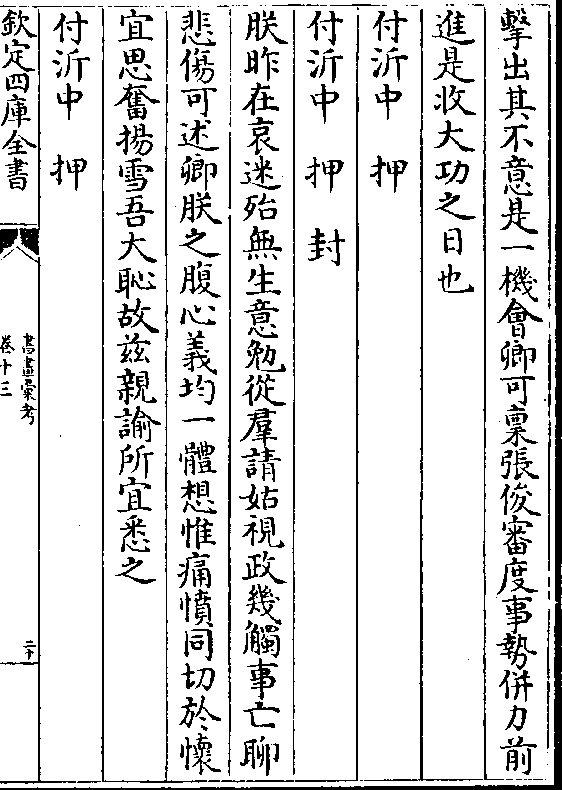 擊出其不意是一機會卿可稟張俊審度事勢併力前
進是收大功之日也
付沂中　押
付沂中　押　封
朕昨在哀迷殆無生意勉從羣請姑視政幾觸事亡聊
悲傷可述卿朕之腹心義均一體想惟痛憤同切於懷
宜思奮揚雪吾大恥故兹親諭所宜悉之
付沂中　押
欽定四庫全書
書畫彙考
卷十三